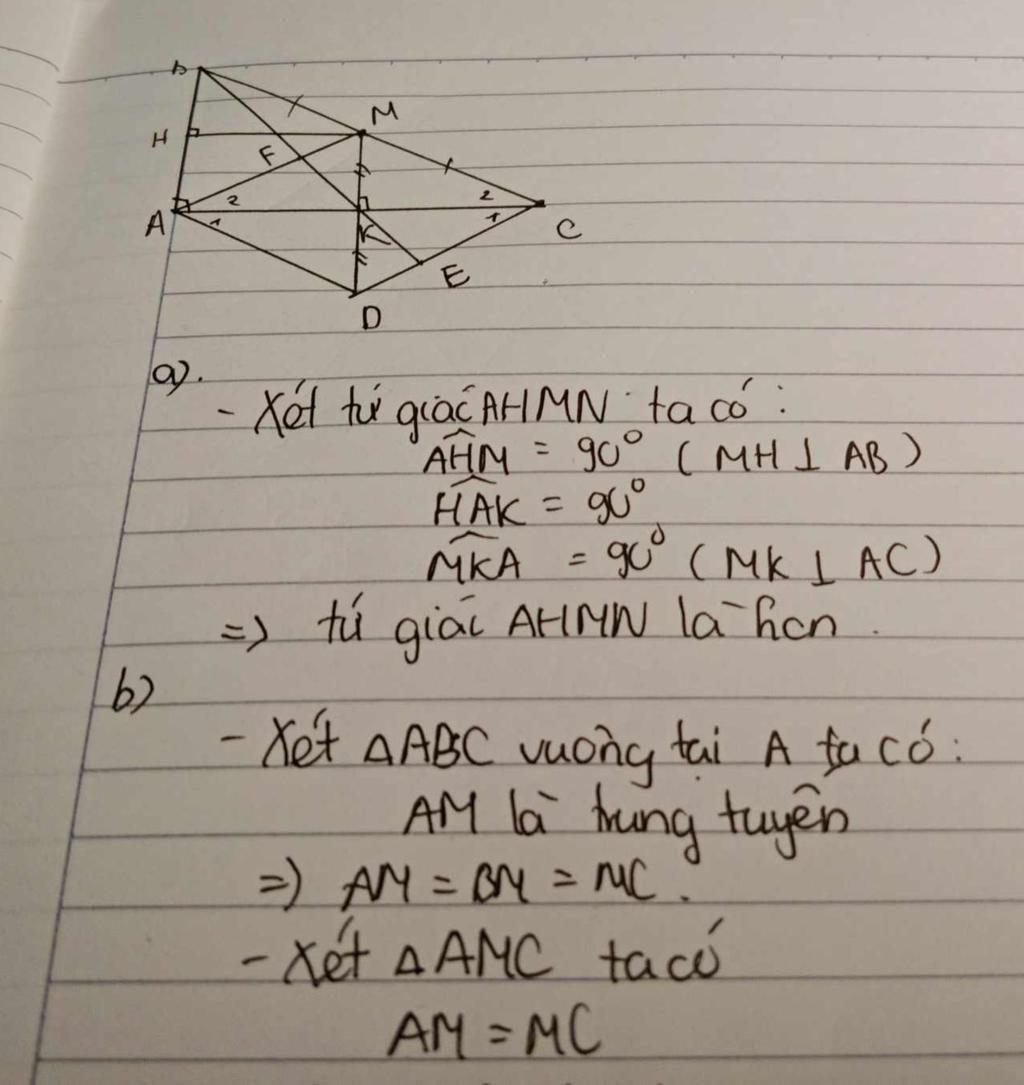 B
H
M
F
2
2
A
1
K
1
C
E
D
a).
- Xét tứ giác AHMN ta có :
AHM = 90° ( MH ⊥ AB )
HAK = 90°
MKA = 90° ( MK ⊥ AC )
=> tứ giác AHMN là hcn .
b)
- Xét ΔABC vuông tại A ta có :
AM là trung tuyên
=) AM = BM = MC .
- Xét ΔAMC ta có
AM = MC